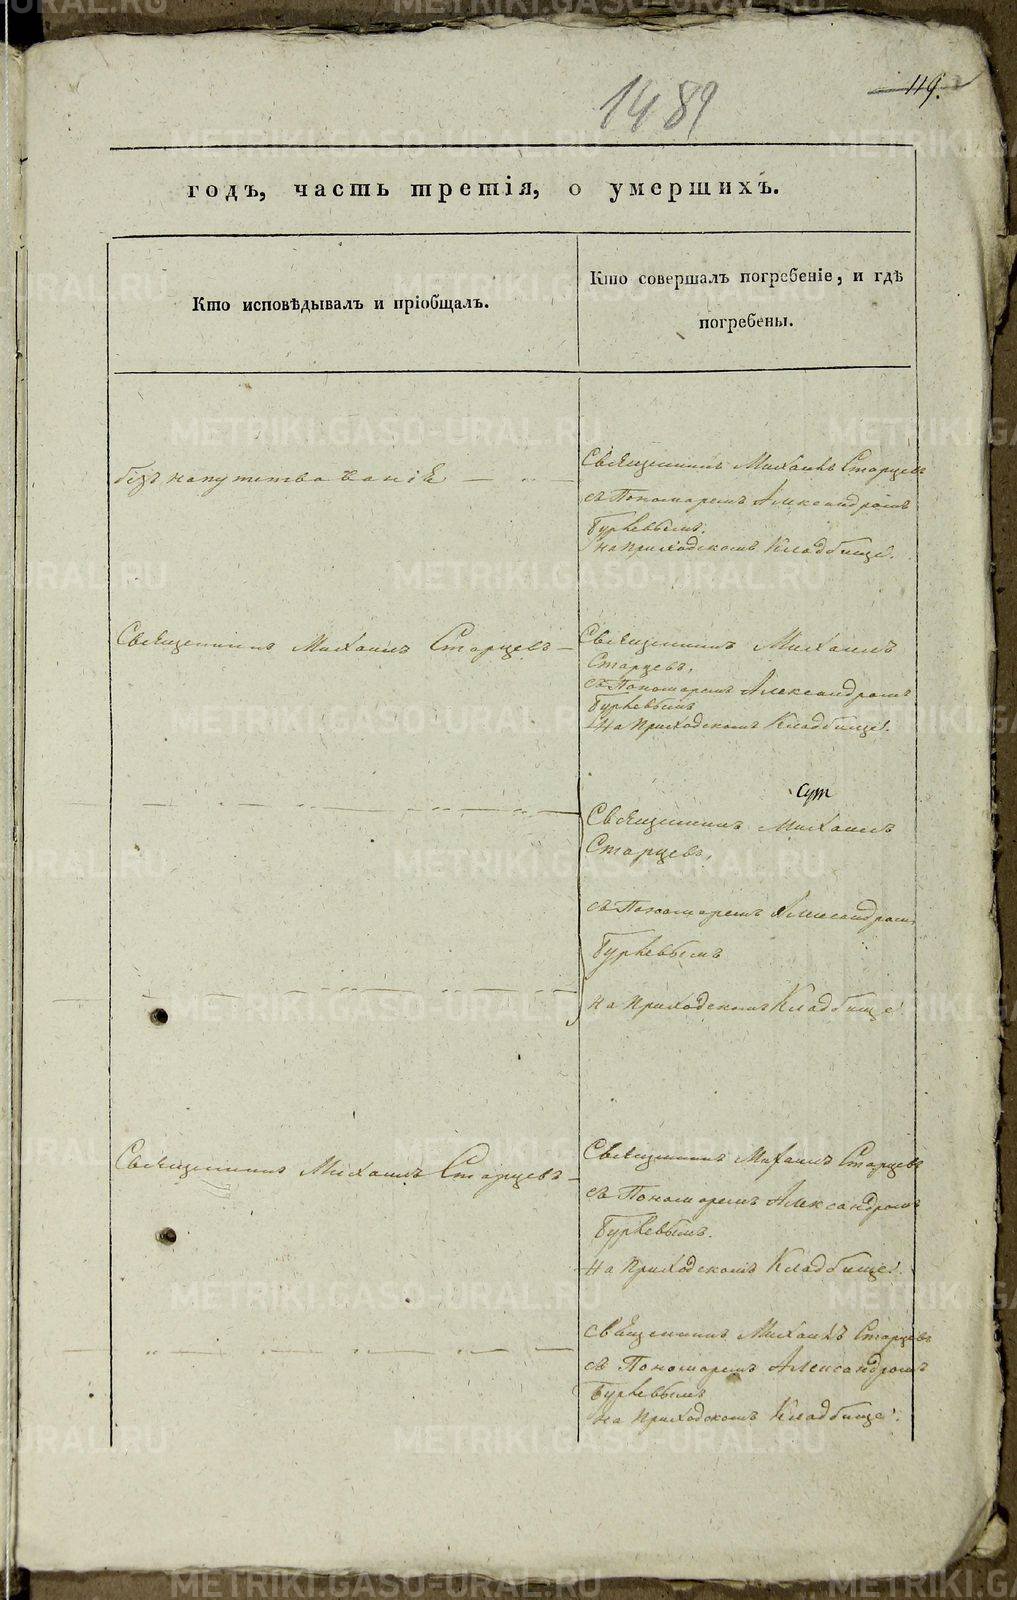 1489
119.
годъ, часть третія, о умершихъ.
Кто исповѣдывалъ и пріобщалъ.
Кто совершалъ погребеніе, и гдѣ
погребены.
безъ напутствованія
Священникъ Михаилъ Старцевъ
съ Пономаремъ Александромъ
на Приходскомъ Кладбище.
Священникъ Михаилъ Старцевъ
Священникъ Михаилъ
Старцевъ,
съ Пономаремъ Александромъ
На Приходскомъ Кладбище.
Священникъ Михаилъ
Старцевъ,
съ Пономаремъ Александромъ
на Приходскомъ Кладбище
Священникъ Михаилъ Старцевъ
Священникъ Михаилъ Старцевъ
съ Пономаремъ Александромъ
на Приходскомъ Кладбище.
Священникъ Михаилъ Старцевъ
съ Пономаремъ Александромъ
на Приходскомъ Кладбище.
METRIKI.GASO-URAL.RU